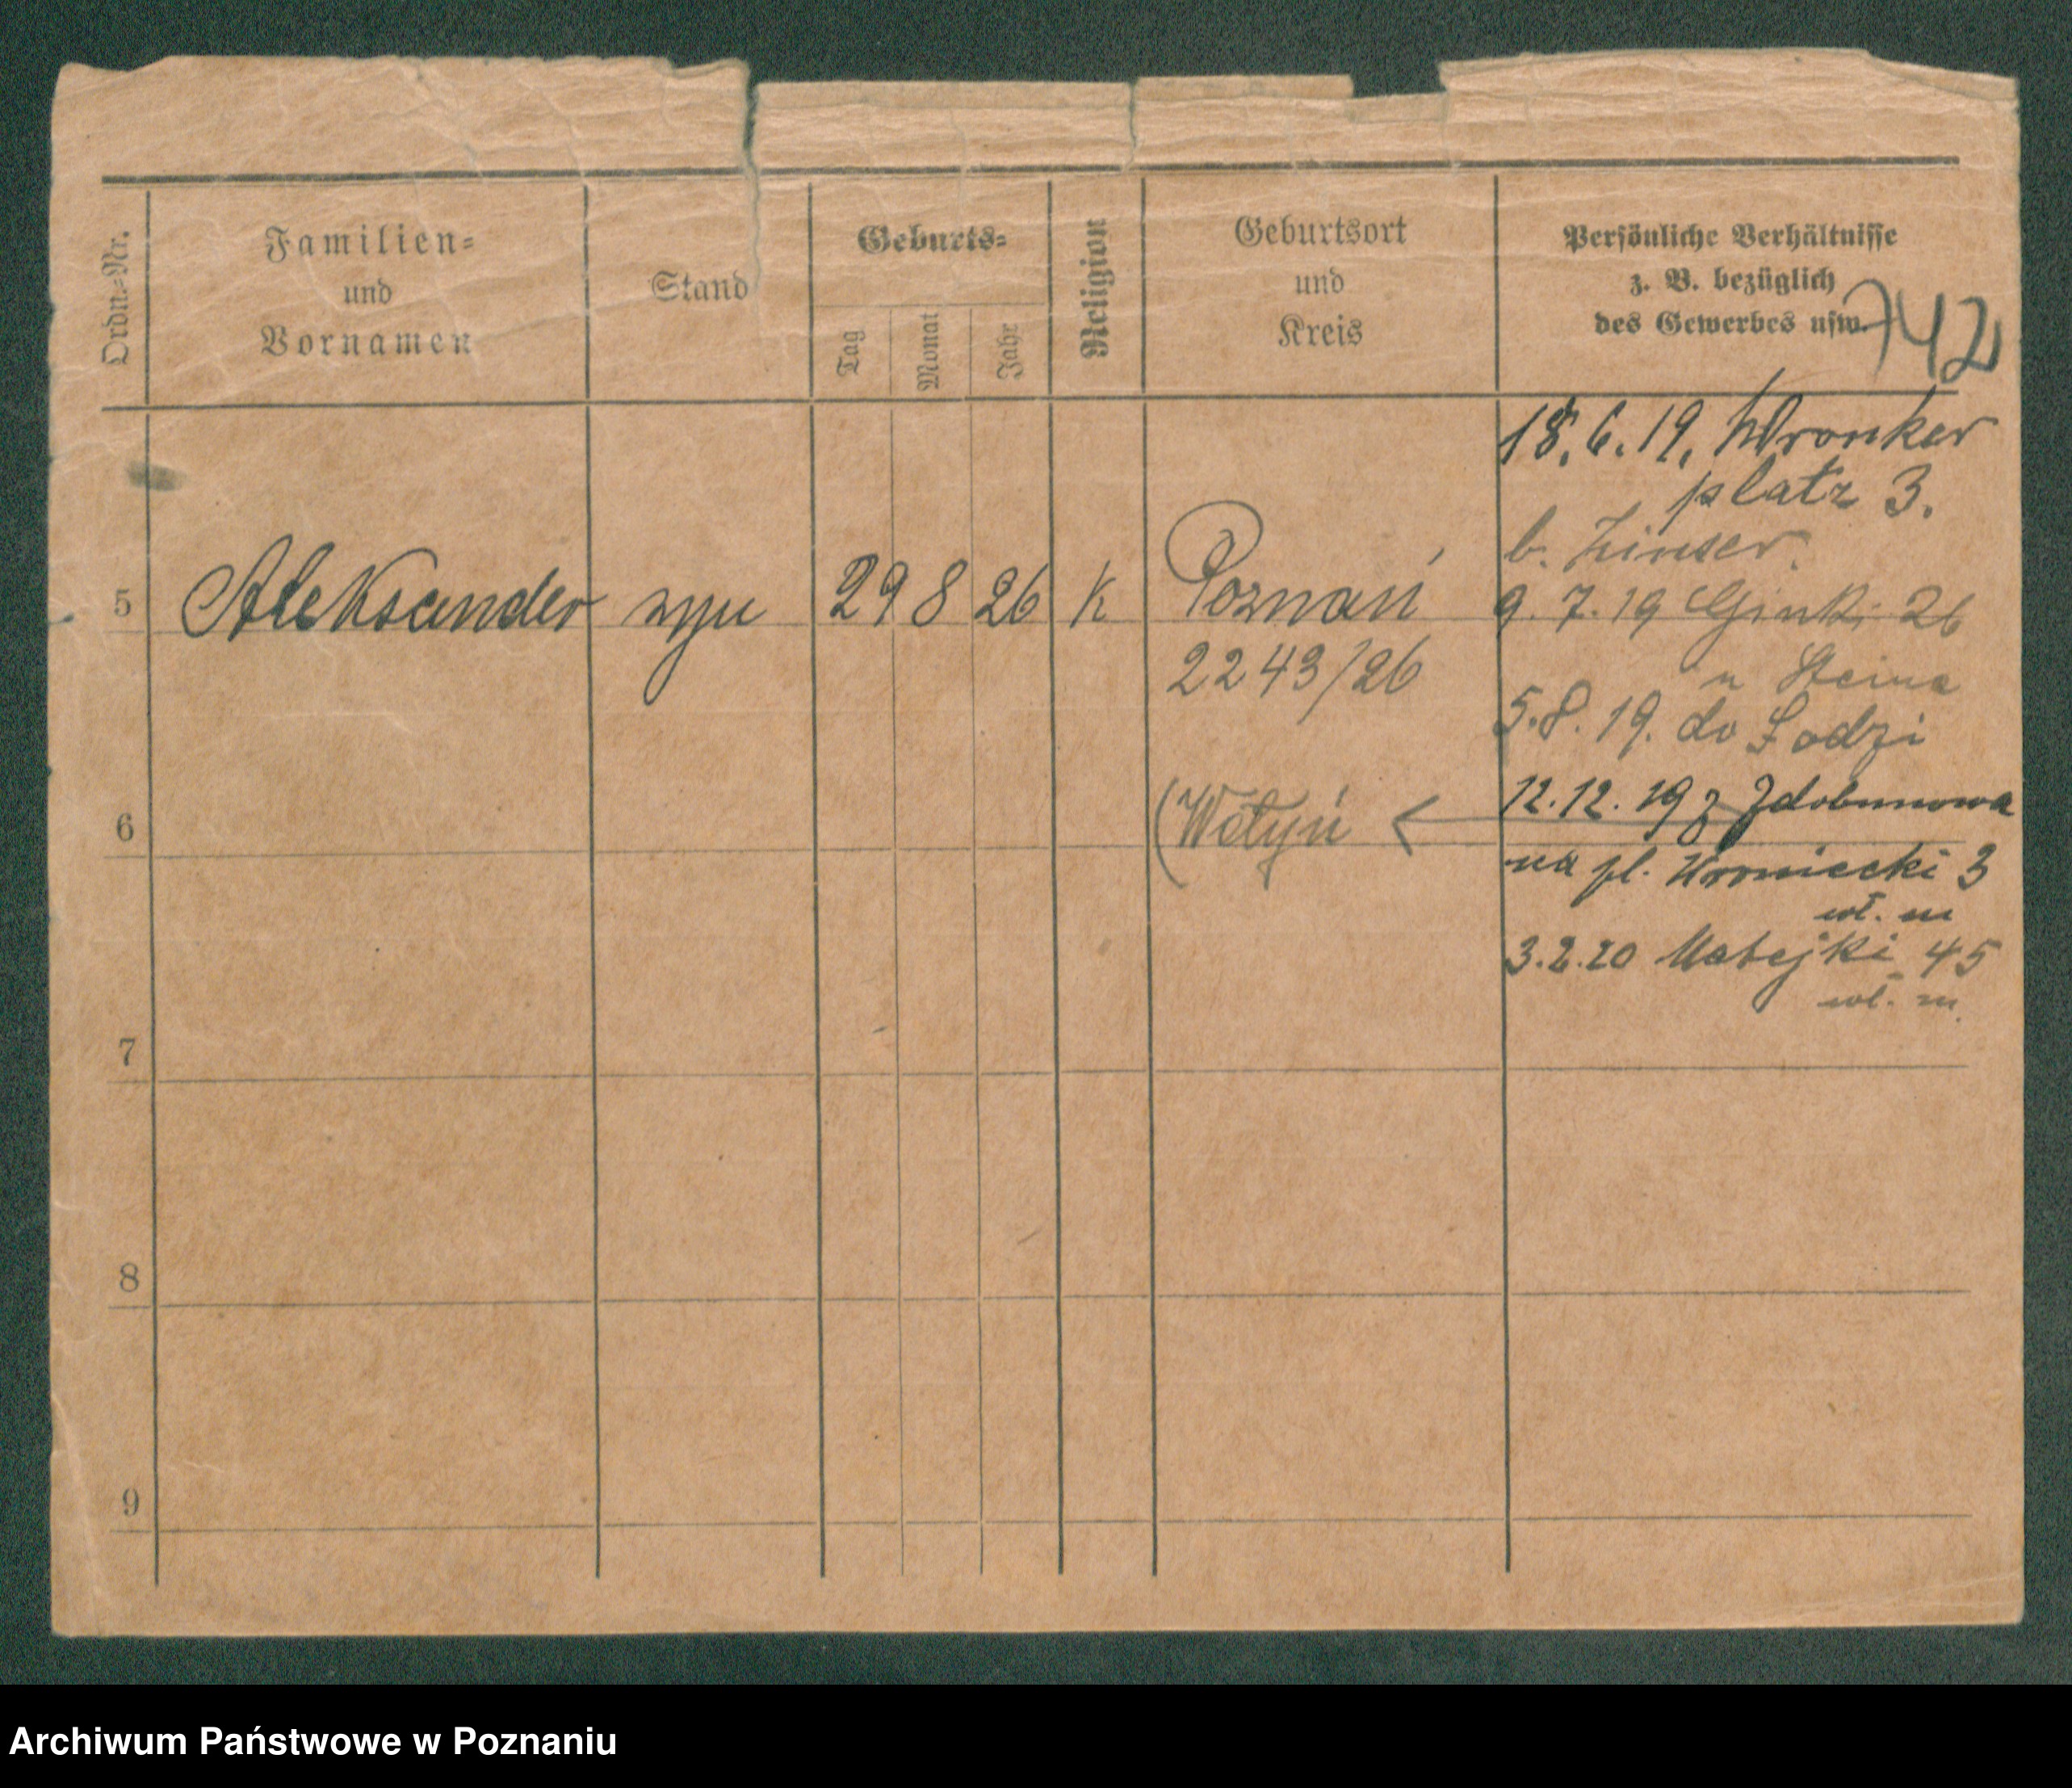 Ordn.-Nr.
Familien-
und
Vornamen
Stand
Geburts-
Tag
Monat
Jahr
Religion
Geburtsort
und
Kreis
Persönliche Verhältnisse
z. B. bezüglich
des Gewerbes usw.
742
18.6.19. Wronker
platz 3.
b. Zinser.
5 Aleksander syn 29 8 26 K Poznań
9.7.19 26
2243/26
u
5.8.19. do Łodzi
6
(Wołyń
12.12.19 z Zdobunowa
na pl. Wroniecki 3
wł. m
3.2.20 Matejki 45
wł. m.
7
8
9
Archiwum Państwowe w Poznaniu